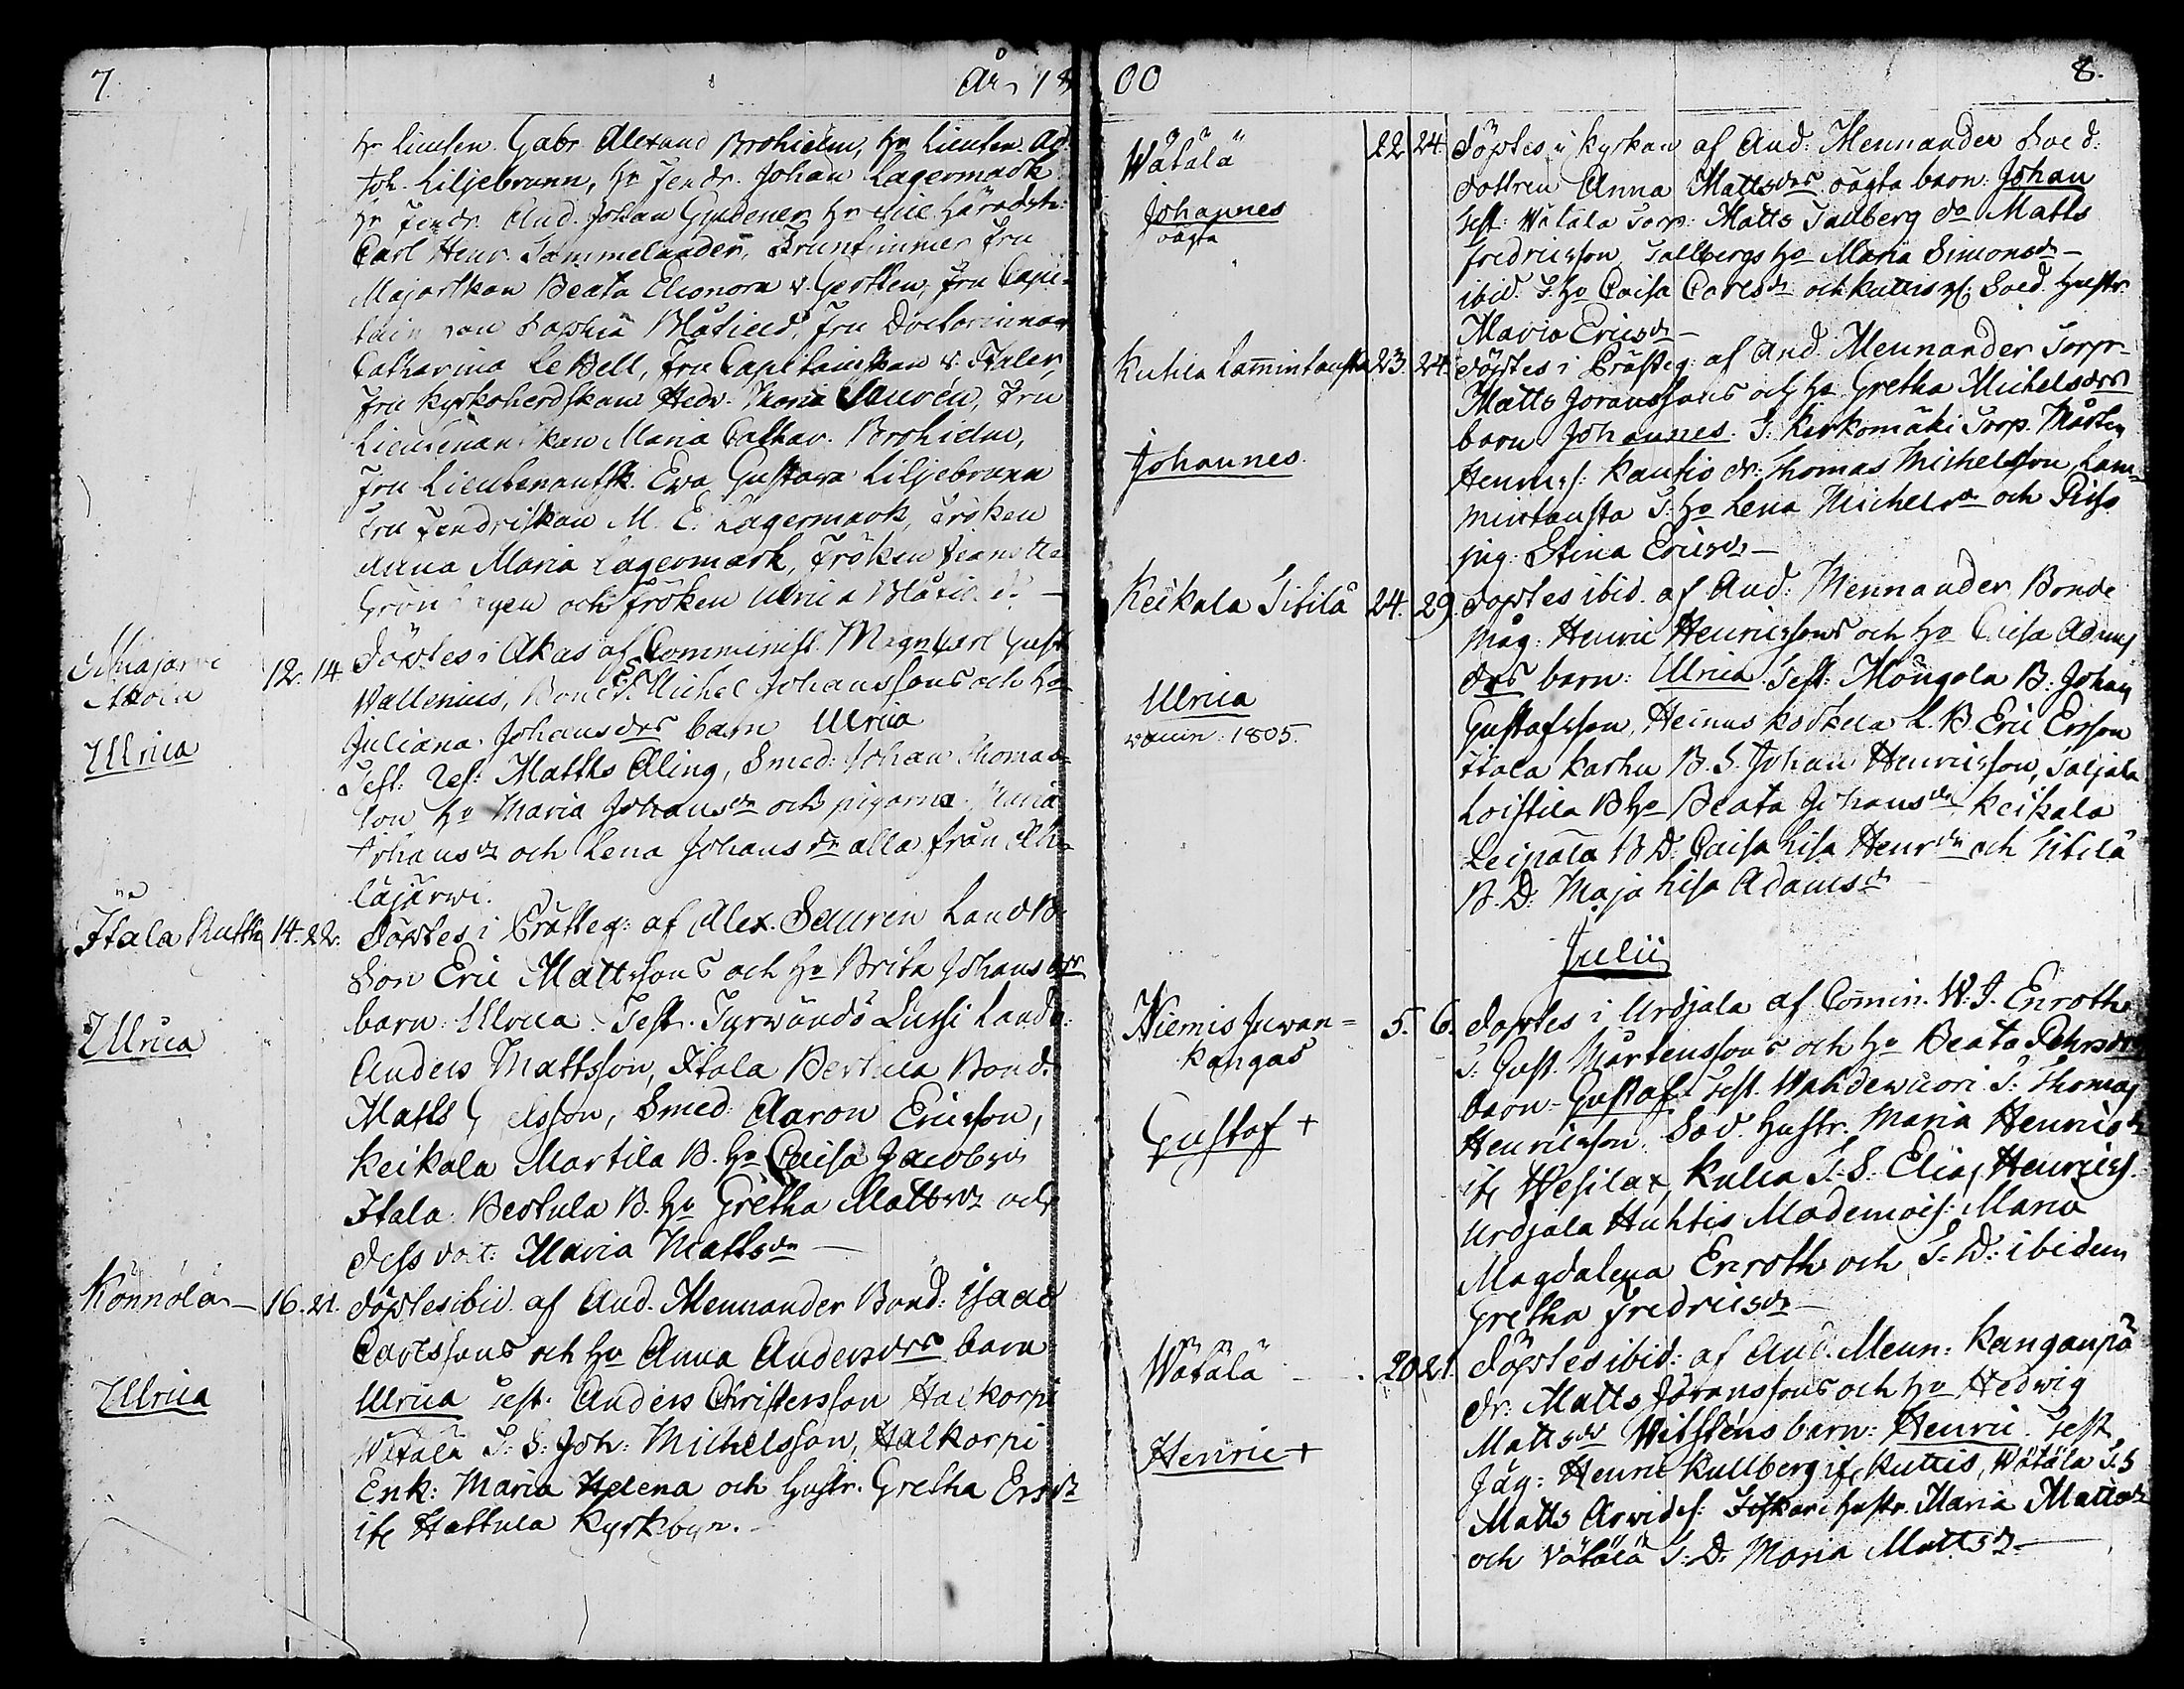 7. År 18
Hr Lieuten. Gabr. Alexand Broheim, Hr Lieuten. Ad.
Joh. Liljebrunn, Hr Fendr. Johan Lagermark
Hr Fendr. And. Johan Gyldener, Hr Häradsh:
Carl Henr. Sammelander, Fruntimmer Fru
Majorskan Beata Eleonora v. Gertten, Fru Capi-
Sophia Blåfield, Fru Doctorinnan
Catharina Le Bell, Fru Capitainskan v. Thaler,
Fru Kyrkoherdskan Hedv. Maria Saurén, Fru
Maria Cathar. Broheim,
Fru Lieutenantsk. Eva Gustava Liljebrunn
Fru Fendrikskan M. E. Lagermark, Fröken
Anna Maria Lagermark, Fröken Jeanette
och Fröken Ulrica Blåfield. –
12. 14 Döptes i Akas af Comminist. Magn. Carl Gust.
Wallenius, Bond. Michel Johanssons och Ho
Ulrica
Juliana Johansdrs barn Ulrica
Test: Matths Aling, Smed: Johan Thomas-
son Ho Maria Johansdr och pigorna Anna
Johansdr och Lena Johansdr alla från
lajärwi.
Itala Kutti 14. 22. Döptes i Prästeg: af Alex. Sauren Land B.
Son Eric Mattssons och Ho Brita Johansdrs
Ulrica
barn: Ulrica. Test. Tyrwändö Lussi Landb:
Anders Mattsson, Itala Bertula Bond.
Matts Smed: Aaron Ericsson,
Keikala Martila B. Ho Caisa Jacobsdr
Itala Bertula B. Ho Gretha Mattsdr och
dess dot: Maria Mattsdr –
Könnölä – 16. 21. Döptes ibid. af And. Mennander Bond: Isaac
Carlssons och Ho Anna Andersdrs barn
Ulrica
Ulrica Test. Anders Christersson Halkorpi
Wätälä T: S: Joh: Michelsson, Halkorpi
Enk: Maria Helena och Hustr. Gretha Ersdr
ifr Hattula Kyrkbyn. –
00 8.
Wätälä 22 24 Döptes i Kyrkan af And: Mennander Sold:
dottren Anna Mattsdrs oägta barn: Johan
Johannes
oägta
Test: Wätälä Torp: Matts Tallberg do Matts
Fredricsson, Tallbergs Ho Maria Simonsdr –
ibid. T. Ho Caisa Carlsdr och Kuttis Sold. Hustr.
Maria Ericsdr –
Kutila Lammintausta 23. 24. Döptes i Prästeg: af And: Mennander Torp-
Matts Joranssons och Ho Gretha Michelsdrs
Johannes.
barn Johannes. T: Kirkomäki Torp. Mårten
Henrics: Kautio dr: Thomas Michelsson Lam-
mintausta T: Ho Lena Michelsdr och
pig: Stina Ericsdr –
Keikala Sitilä 24. 29. Döptes ibid. af And: Mennander Bonde
Måg: Henric Henricssons och Ho Caisa Adams
Ulrica
vaccin: 1805.
drs barn: Ulrica. Test: Mongola B. Johan
Gustafsson, Heinus Koskela L. B. Eric Ersson
Itala Karhu B. S. Johan Henricsson, Saljala
Loistila B Ho Beata Johansdr Keikala
Leipälä B D. Caisa Lisa Henrdr och Sitilä
B. D: Maja Lisa Adamsdr
Julii
Niemis Juvan=
kangas 5. 6. Döptes i Urdjala af Comin. W. J. Enroth
T: Gust. Mårtenssons och Ho Beata Pehrsdrs
Gustaf +
barn – Gustaf. Test. Wahdewuori T: Thomas
Henricsson. Sold. Hustr. Maria Henricsdr
ifr Wesilax, Kulia T. S. Elias Henrics.
Urdjala Huhtis Mademois: Maria
Magdalena Enroth och T: D: ibidem
Gretha Fredricsdr –
Wätälä 20 21. Döptes ibid: af And. Menn: Kanganpä
dr: Matts Jöranssons och Ho Hedwig
Henric +
Mattsdr Wilsténs barn: Henric. Test,
Jäg: Henric Kullberg ifr Kuttis, Wätälä T. S
Matts Arwids: Hustr. Maria Mattsdr
och Vätälä T: D: Maria Mattsdr –